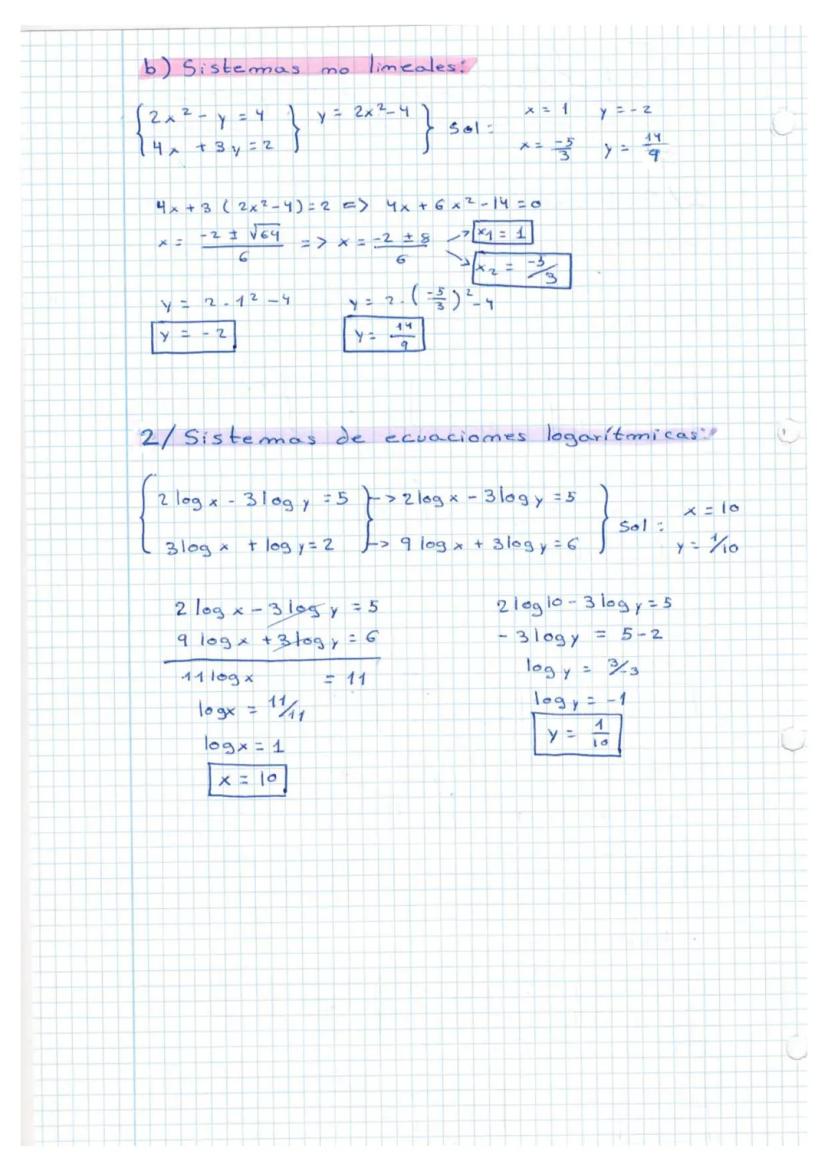 b) Sistemas no lineales:
{2x² - y = 4 } y = 2x²-4 } Sol: x = 1 y = -2
{4x + 3y = 2 x = -5/3 y = 14/9
4x + 3 (2x²-4) = 2 => 4x + 6x² - 14 = 0
x = (-2 ± √64)/6 => x = (-2 ± 8)/6 → x₁ = 1
→ x₂ = -5/3
y = 2 · 1² - 4 y = 2 · (-5/3)² - 4
y = -2 y = 14/9
2/ Sistemas de ecuaciones logarítmicas:
{2 log x - 3 log y = 5 }-> 2 log x - 3 log y = 5 } Sol: x = 10
{3 log x + log y = 2 }-> 9 log x + 3 log y = 6 y = 1/10
2 log x - 3 log y = 5
9 log x + 3 log y = 6
11 log x = 11
log x = 11/11
log x = 1
x = 10
2 log 10 - 3 log y = 5
- 3 log y = 5 - 2
log y = 3/3
log y = -1
y = 1/10